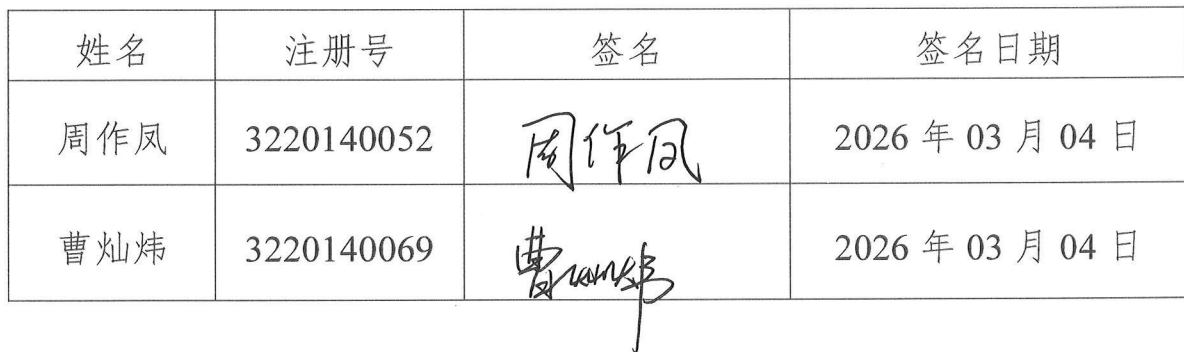 姓名 注册号 签名 签名日期
周作凤 3220140052 周作凤 2026 年 03 月 04 日
曹灿炜 3220140069 曹灿炜 2026 年 03 月 04 日